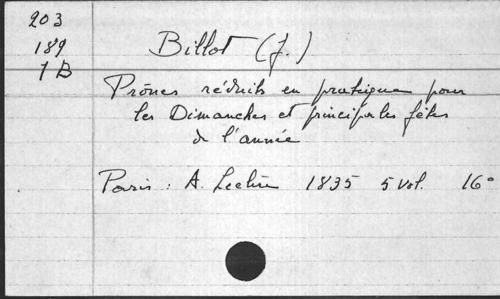 203
189
1B
Billot (J.)
Prônes réduits en pratique pour
les Dimanches et principales fêtes
de l'année
Paris : A. Leclère 1835 5 vol. 16°